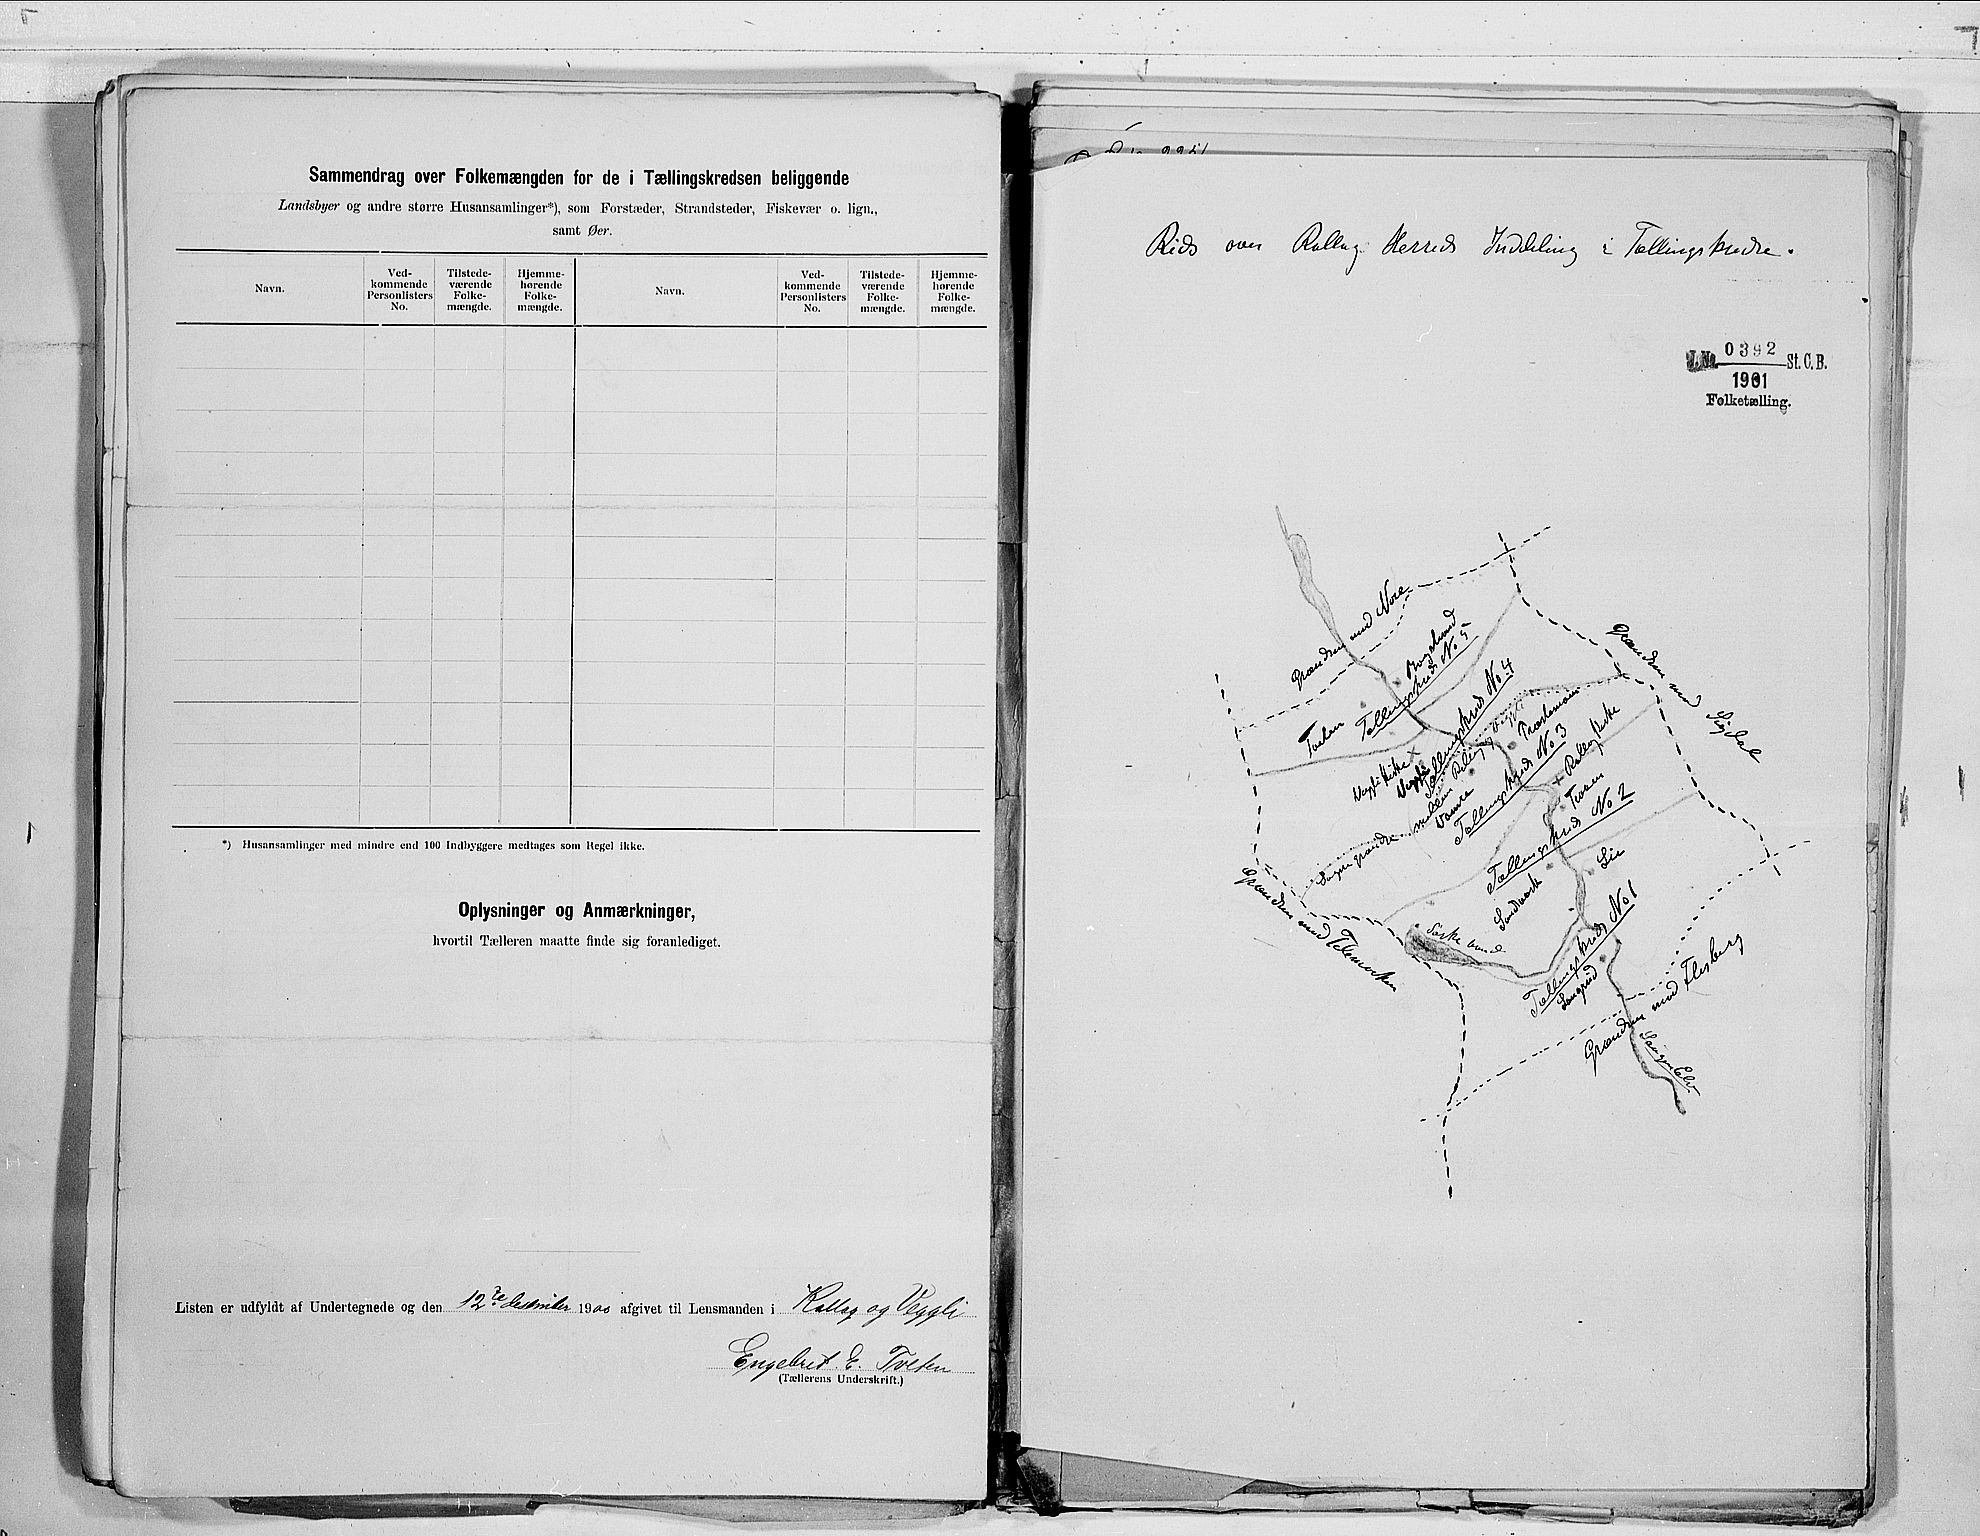 Sammendrag over Folkemængden for de i Tællingskredsen beliggende
Landsbyer og andre større Husansamlinger*), som Forstæder, Strandsteder, Fiskevær o. lign.,
samt Øer.
Navn.
Ved-
kommende
Personlisters
No.
Tilstede-
værende
Folke-
mængde.
Hjemme-
hørende
Folke-
mængde.
Navn.
Ved-
kommende
Personlisters
No.
Tilstede-
værende
Folke-
mængde.
Hjemme-
hørende
Folke-
mængde.
*) Husansamlinger med mindre end 100 Indbyggere medtages som Regel ikke.
Oplysninger og Anmærkninger,
hvortil Tælleren maatte finde sig foranlediget.
Listen er udfyldt af Undertegnede og den 12te desember 1900 afgivet til Lensmanden i Rollag og Veggli
Engebret E. Tveten
(Tællerens Underskrift.)
Rids over Rollag Herreds Inddeling i Tællingskredse.
J. No. 0392 St. C. B.
1901
Folketælling.
Grændsen mod Nore
Tællingskreds No 5
Grændsen mod Sigdal
Tællingskreds No 4
Veggli Kirke
Veggli
Tællingskreds No 3
Rollag Kirke
Traaen
Tællingskreds No 2
Sognegrændse mellem Rollag og Veggli
Lie
Grændsen mod Telemarken
Tællingskreds No 1
Grændsen mod Flesberg
Laagen Elv